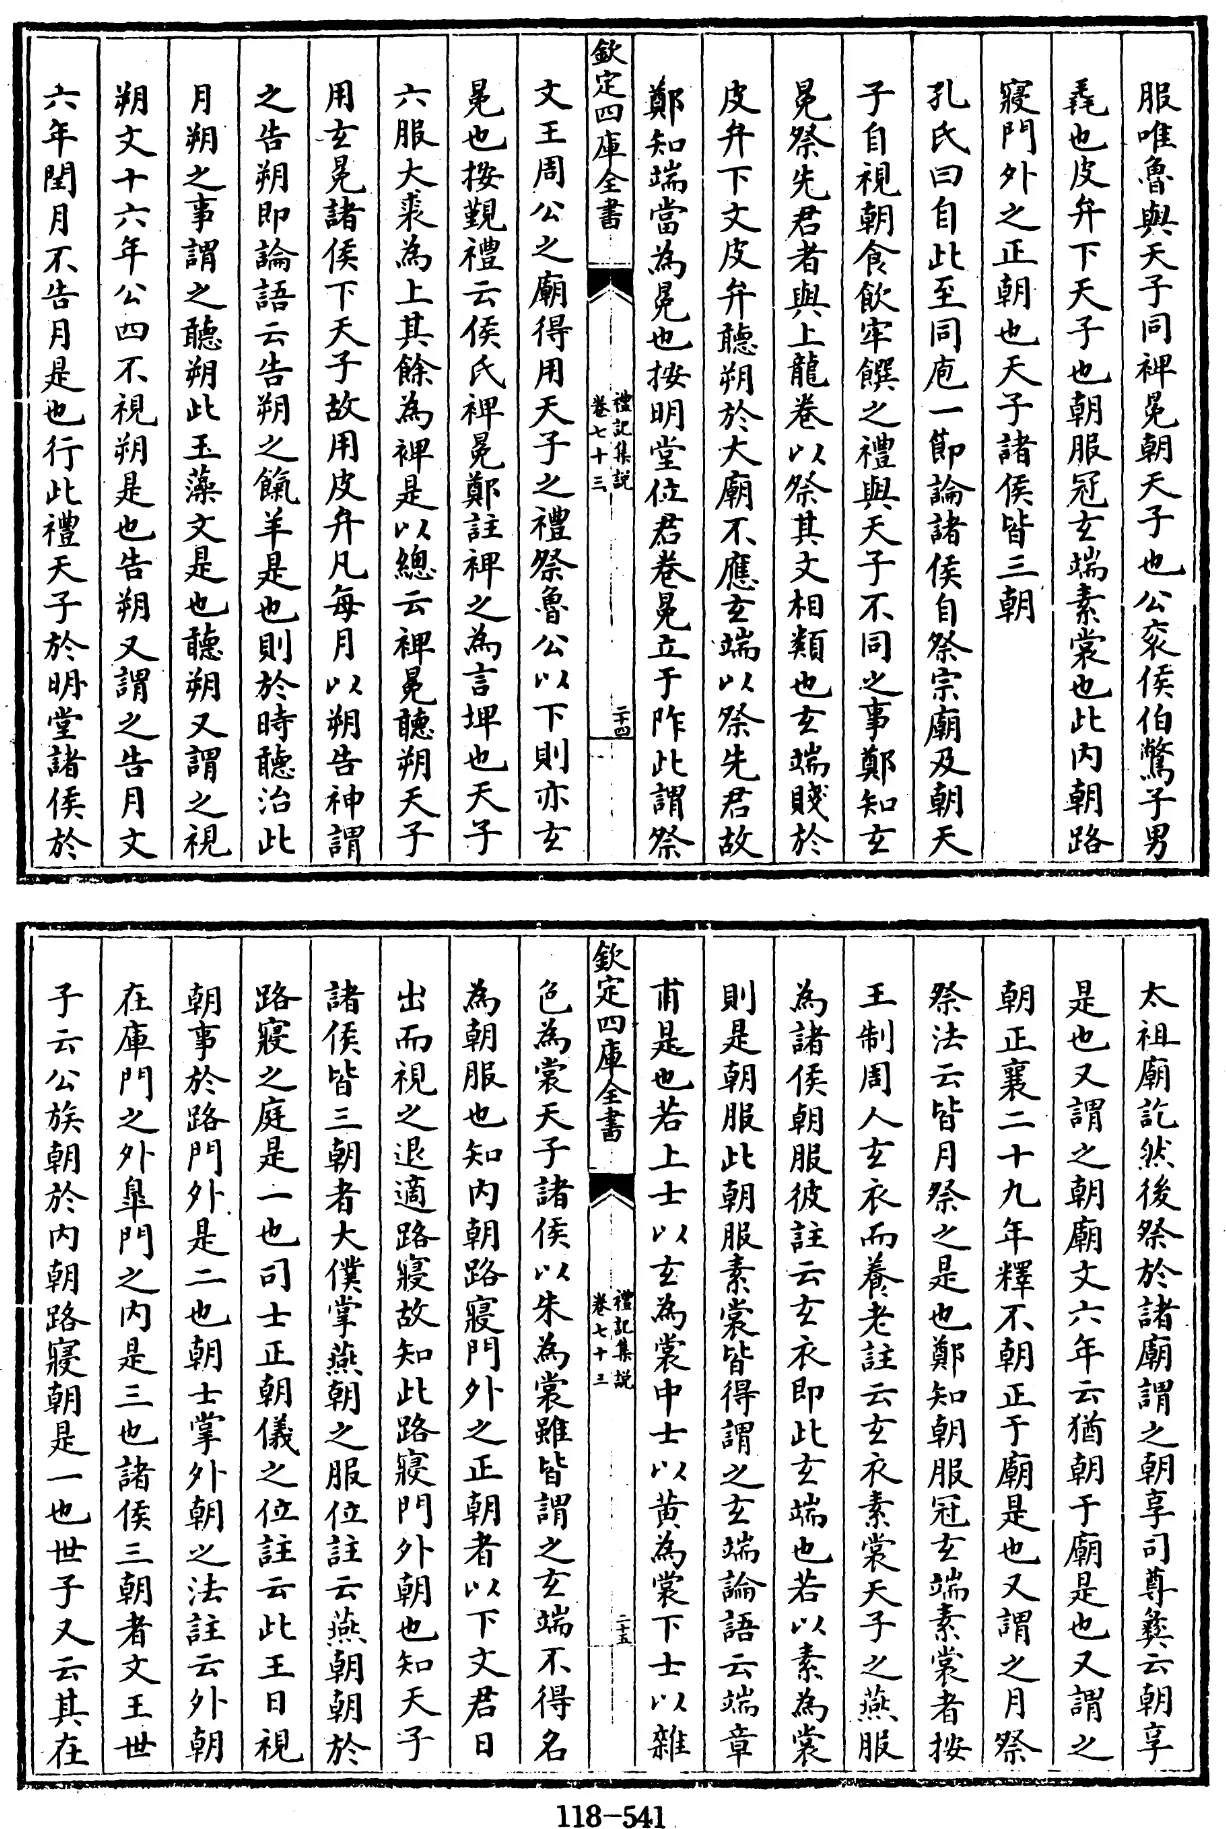 服唯魯與天子同裨冕朝天子也公衮侯伯鷩子男
毳也皮弁下天子也朝服冠玄端素裳也此内朝路
寢門外之正朝也天子諸侯皆三朝
孔氏曰自此至同庖一節論諸侯自祭宗廟及朝天
子自視朝食飲牢饌之禮與天子不同之事鄭知玄
冕祭先君者與上龍卷以祭其文相類也玄端賤於
皮弁下文皮弁聽朔於大廟不應玄端以祭先君故
鄭知端當為冕也按明堂位君卷冕立于阼此謂祭
欽定四庫全書
禮記集説
卷七十三
二十四
文王周公之廟得用天子之禮祭魯公以下則亦玄
冕也按覲禮云侯氏裨冕鄭註裨之為言埤也天子
六服大裘為上其餘為裨是以總云裨冕聽朔天子
用玄冕諸侯下天子故用皮弁凡每月以朔告神謂
之告朔即論語云告朔之餼羊是也則於時聽治此
月朔之事謂之聽朔此玉藻文是也聽朔又謂之視
朔文十六年公四不視朔是也告朔又謂之告月文
六年閏月不告月是也行此禮天子於明堂諸侯於
太祖廟訖然後祭於諸廟謂之朝享司尊彝云朝享
是也又謂之朝廟文六年云猶朝于廟是也又謂之
朝正襄二十九年釋不朝正于廟是也又謂之月祭
祭法云皆月祭之是也鄭知朝服冠玄端素裳者按
王制周人玄衣而養老註云玄衣素裳天子之燕服
為諸侯朝服彼註云玄衣即此玄端也若以素為裳
則是朝服此朝服素裳皆得謂之玄端論語云端章
甫是也若上士以玄為裳中士以黄為裳下士以雜
欽定四庫全書
禮記集説
卷七十三
二十五
色為裳天子諸侯以朱為裳雖皆謂之玄端不得名
為朝服也知内朝路寢門外之正朝者以下文君日
出而視之退適路寢故知此路寢門外朝也知天子
諸侯皆三朝者大僕掌燕朝之服位註云燕朝朝於
路寢之庭是一也司士正朝儀之位註云此王日視
朝事於路門外是二也朝士掌外朝之法註云外朝
在庫門之外臯門之内是三也諸侯三朝者文王世
子云公族朝於内朝路寢朝是一也世子又云其在
118-541